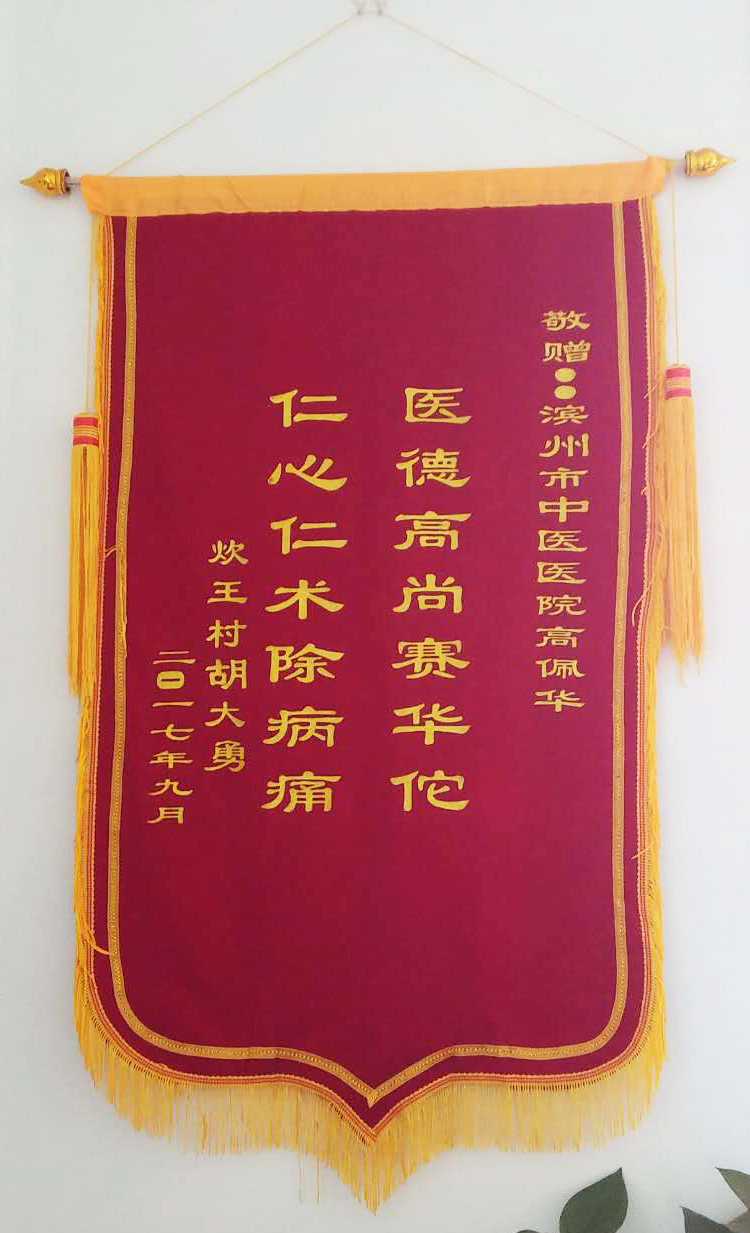 敬赠：滨州市中医医院高佩华
医德高尚赛华佗
仁心仁术除病痛
炊王村胡大勇
二〇一七年九月